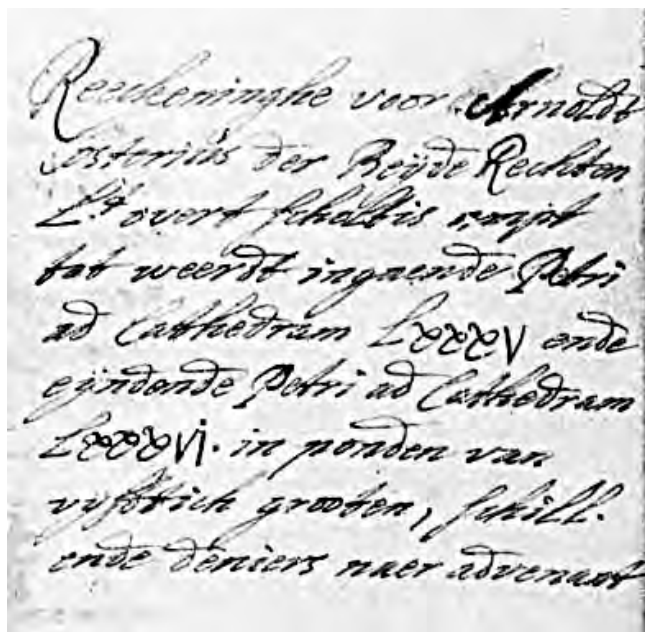 Reeckeninghe voor Arnoldt
Costerius der Beÿde Rechten
L.t overt scholtis ampt
tot weerdt ingaende Petri
ad Cathedram LxxxxV ende
eÿndende Petri ad Cathedram
LxxxxVi. in ponden van
vyfftich grooten, schill.
ende deniers naer advenant